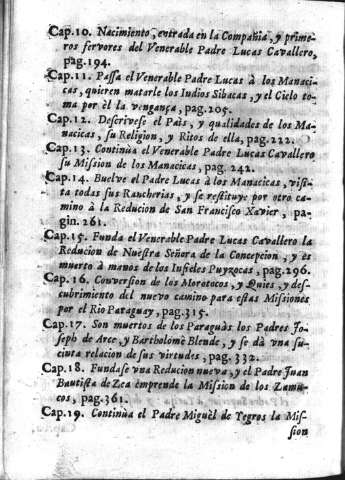 Cap.10. Nacimiento, entrada en la Compañia, y prime-
ros fervores del Venerable Padre Lucas Cavallero,
pag.194.
Cap.11. Passa el Venerable Padre Lucas à los Manaci-
cas, quieren matarle los Indios Sibacas, y el Cielo to-
ma por èl la vengança, pag.205.
Cap.12. Descrivese el Pais, y qualidades de los Ma-
nacicas, su Religion, y Ritos de ella, pag.222.
Cap.13. Continùa el Venerable Padre Lucas Cavallero
su Mission de los Manacicas, pag. 242.
Cap.14. Buelve el Padre Lucas à los Manacicas, visi-
ta todas sus Rancherias, y se restituye por otro ca-
mino à la Reducion de San Francisco Xavier, pa-
gin. 261.
Cap.15. Funda el Venerable Padre Lucas Cavallero la
Reducion de Nuestra Señora de la Concepcion, y es
muerto à manos de los Infieles Puyzocas, pag.296.
Cap.16. Conversion de los Morotocos, y Quies, y des-
cubrimiento del nuevo camino para estas Missiones
por el Rio Paraguay, pag.315.
Cap.17. Son muertos de los Paraguàs los Padres Jo-
seph de Arce, y Bartholomè Blende, y se dà vna su-
cinta relacion de sus virtudes, pag. 332.
Cap.18. Fundase vna Reducion nueva, y el Padre Juan
Bautista de Zea emprende la Mission de los Zamu-
cos, pag.361.
Cap.19. Continùa el Padre Miguèl de Yegros la Mis-
sion